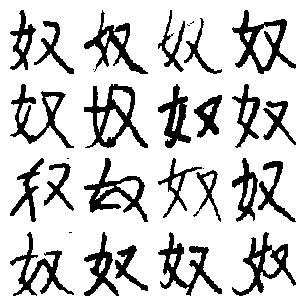 奴奴奴奴
奴奴奴奴
奴奴奴奴
奴奴奴奴